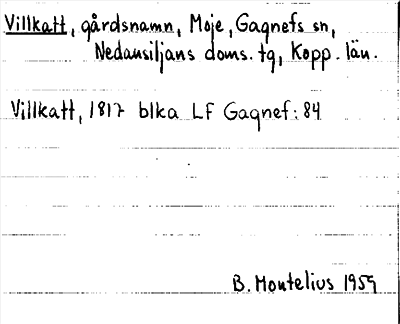 Villkatt, gårdsnamn, Moje, Gagnefs sn,
Nedansiljans doms. tg, Kopp. län.
Villkatt, 1817 blka LF Gagnef: 84
B. Montelius 1959